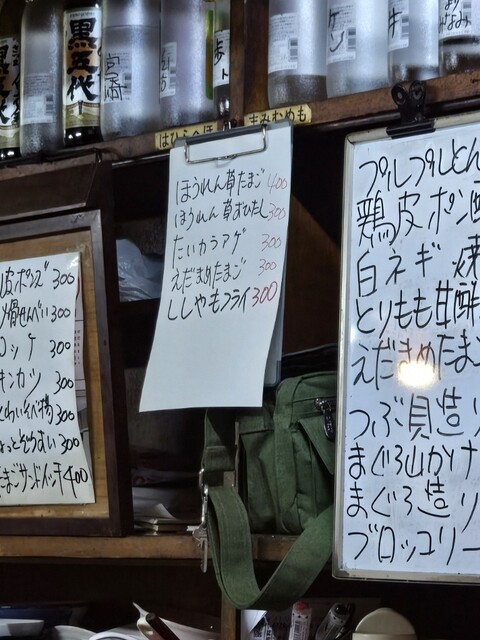 黒五代
はひらへほ
まみむめも
ほうれん草たまご 400
ほうれん草おひたし 300
たいカラアゲ 300
えだまめたまご 300
ししゃもフライ 300
皮ポンズ 300
骨せんべい 300
ロッケ 300
キンカツ 300
300
300
まごサンドイッチ 400
プルプルとん
鶏皮ポン酢
白ネギ 焼
とりもも甘酢
えだまめたまご
つぶ貝造り
まぐろ山かけ
まぐろ造り
ブロッコリー